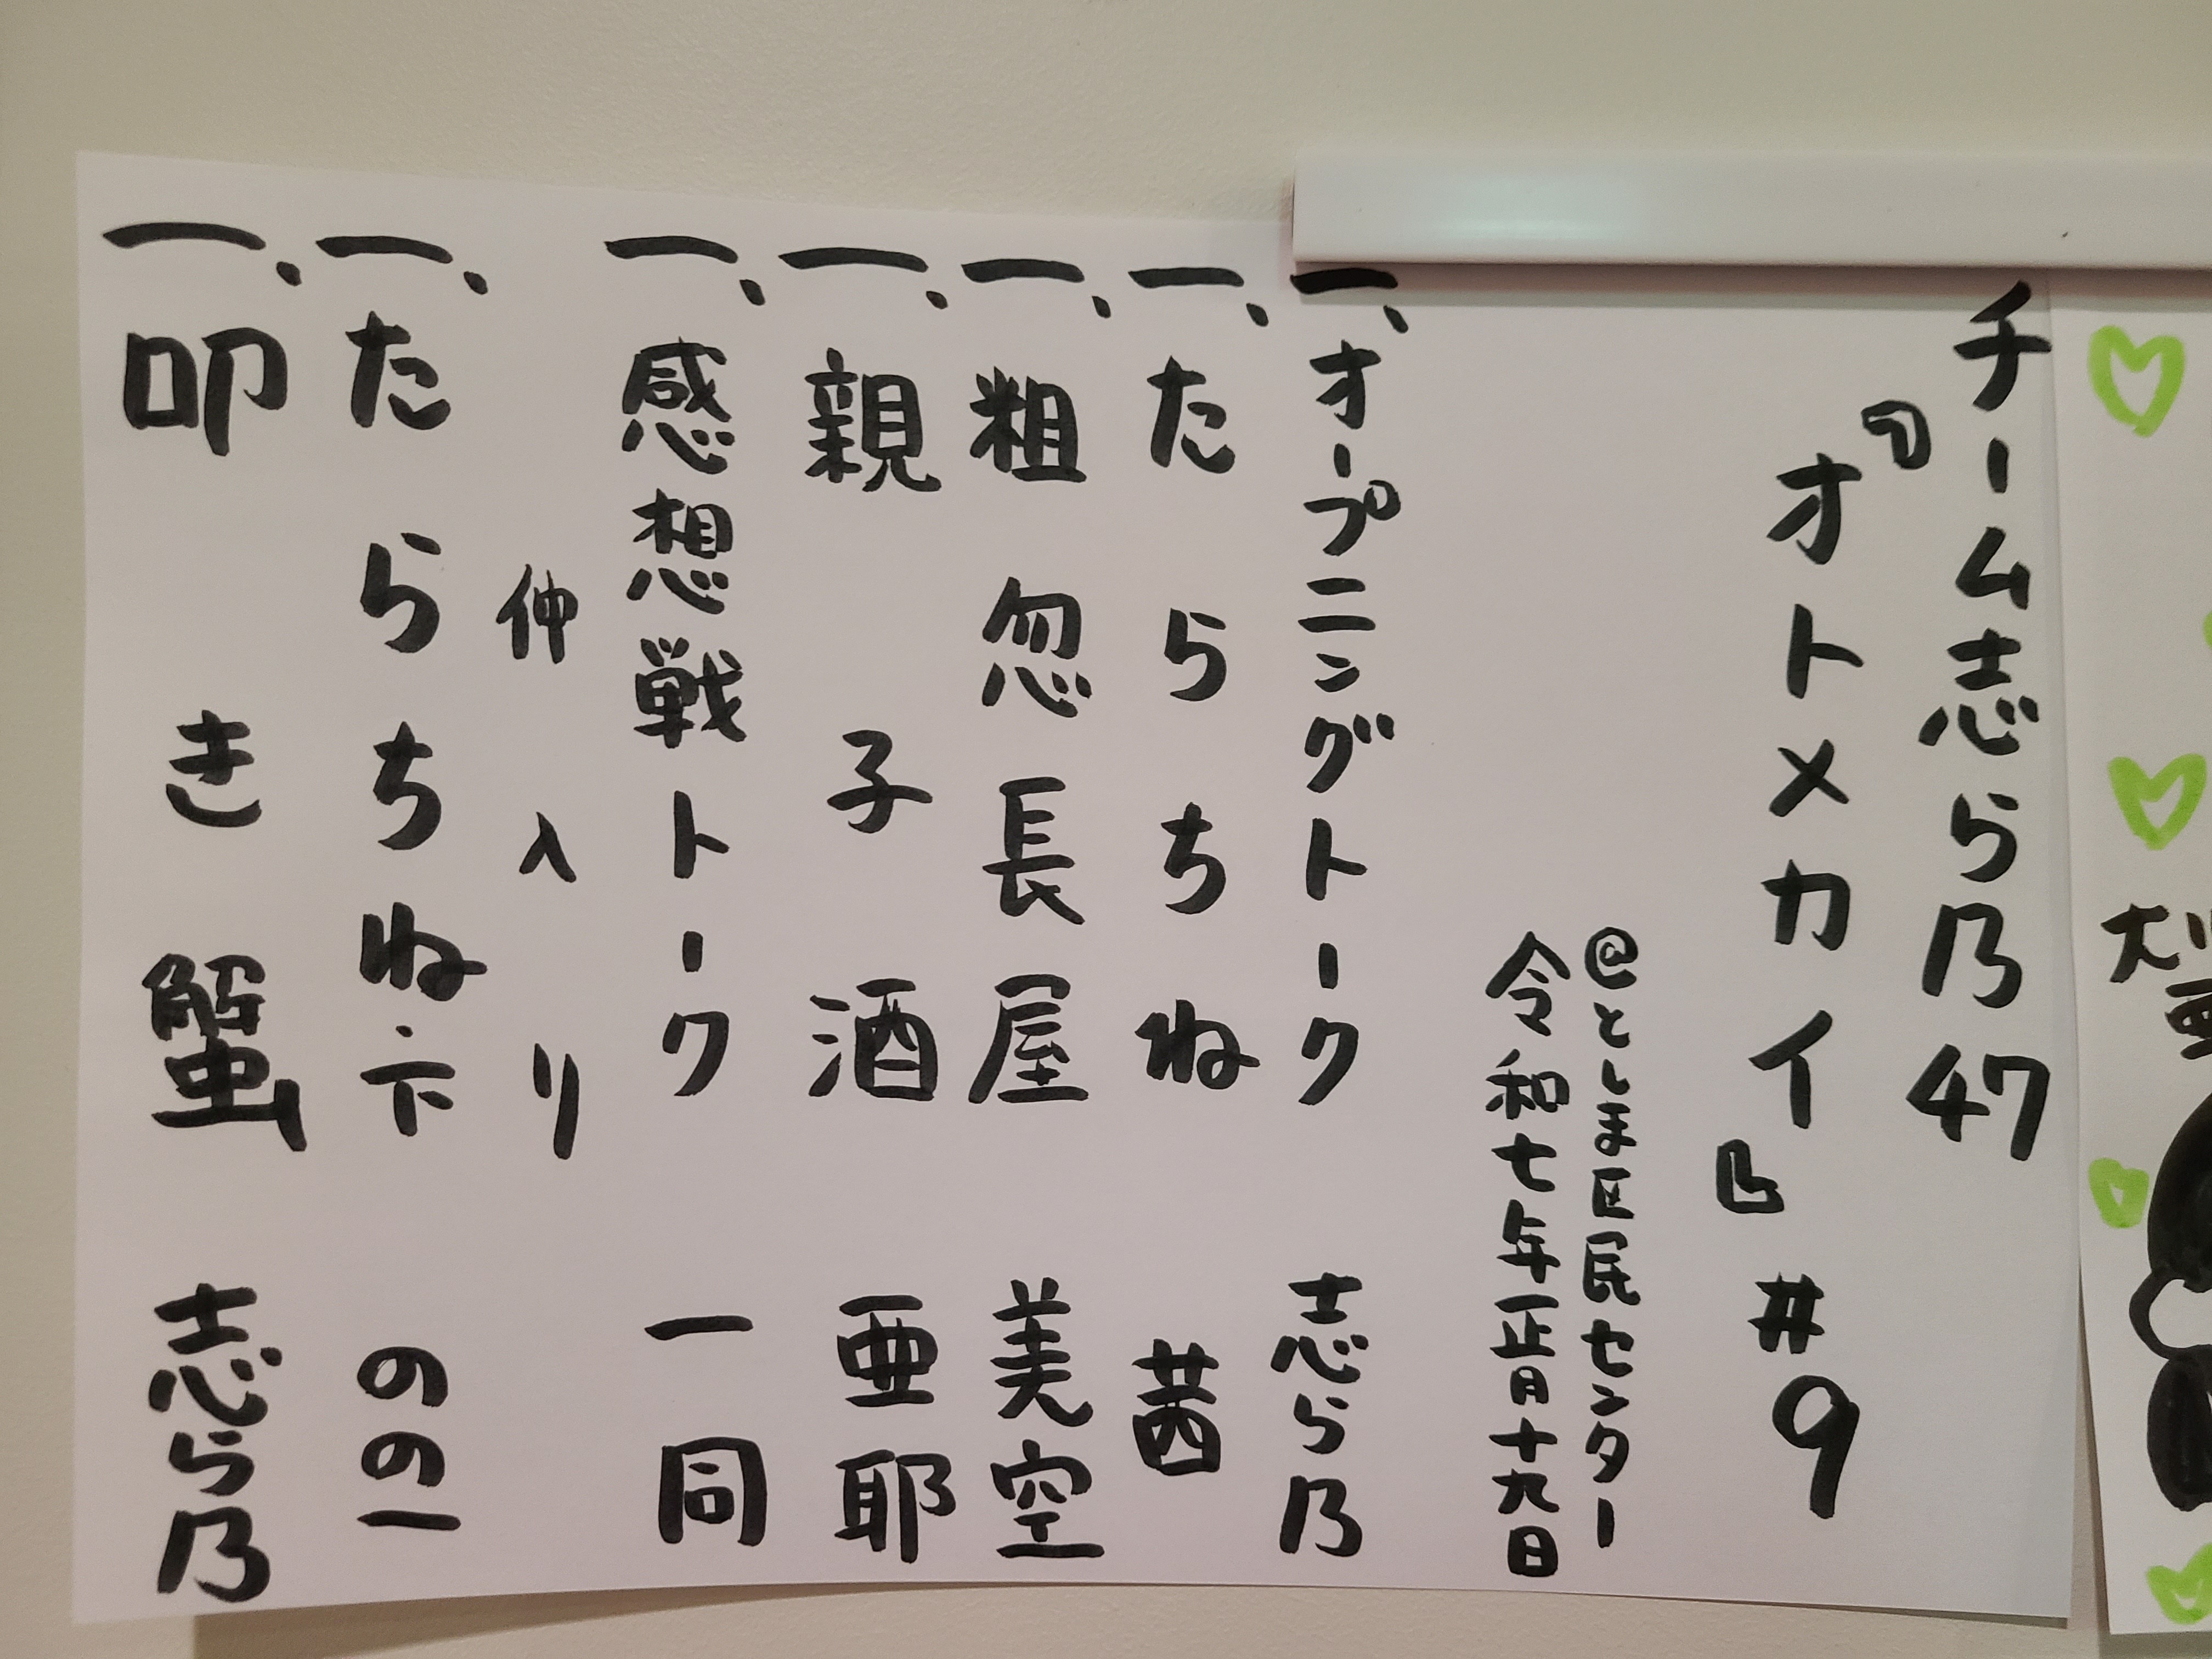 チーム志ら乃47
『オトメカイ』#9
@としま区民センター
令和七年正月十九日
一、オープニングトーク 志ら乃
一、たらちね 茜
一、粗忽長屋 美空
一、親子酒 亜耶
一、感想戦トーク 一同
仲入り
一、たらちね・下 のの一
一、叩き蟹 志ら乃